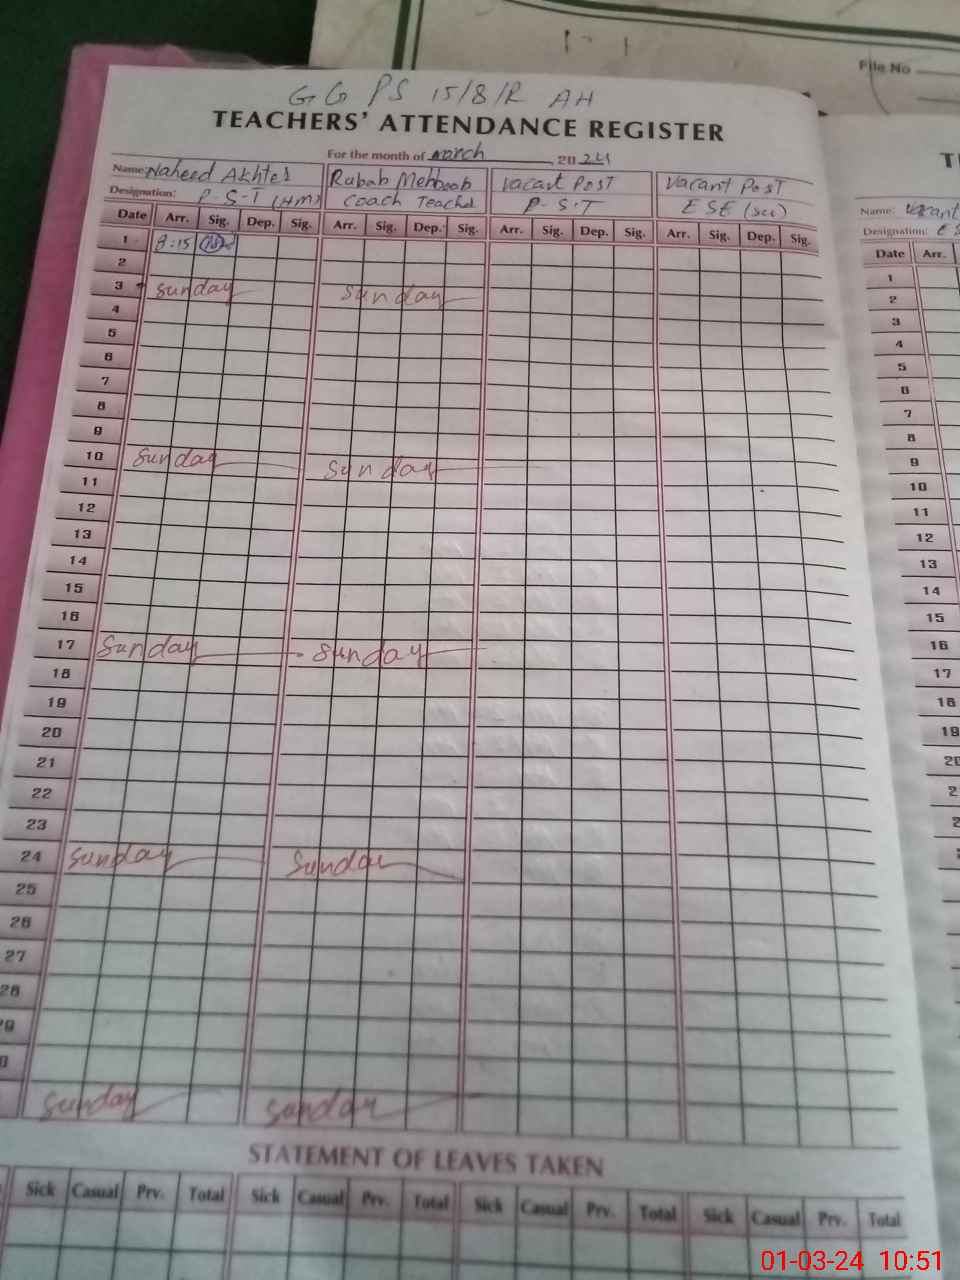 File No
GG PS 15/8/R AH
TEACHERS' ATTENDANCE REGISTER
For the month of March 2024
Name: Naheed Akhter Rubab Mehboob Vacant Post Vacant Post
Designation: P-S-T (HM) Coach Teacher P-S-T ESE (sci)
Date Arr. Sig. Dep. Sig. Arr. Sig. Dep. Sig. Arr. Sig. Dep. Sig. Arr. Sig. Dep. Sig.
1 8:15
2
3 Sunday Sunday
4
5
6
7
8
9
10 Sunday Sunday
11
12
13
14
15
16
17 Sunday Sunday
18
19
20
21
22
23
24 Sunday Sunday
25
26
27
28
29
0
Sunday Sunday
STATEMENT OF LEAVES TAKEN
Sick Casual Prv. Total Sick Casual Prv. Total Sick Casual Prv. Total Sick Casual Prv. Total
Name: Vacant
Designation:
Date Arr.
1
2
3
4
5
6
7
8
9
10
11
12
13
14
15
16
17
18
19
20
01-03-24 10:51